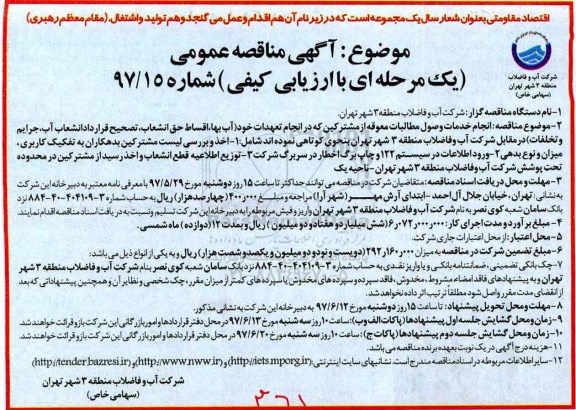 اقتصاد مقاومتی بعنوان شعار سال یک مجموعه است که در زیر نام آن هم اقدام و عمل می گنجد و هم تولید و اشتغال. (مقام معظم رهبری)
موضوع: آگهی مناقصه عمومی
(یک مرحله ای با ارزیابی کیفی) شماره ۹۷/۱۵
شرکت آب و فاضلاب
منطقه ۳ شهر تهران
(سهامی خاص)
۱-نام دستگاه مناقصه گزار: شرکت آب و فاضلاب منطقه ۳ شهر تهران.
۲-موضوع مناقصه: انجام خدمات وصول مطالبات معوقه از مشترکین که در انجام تعهدات خود (آب بها، اقساط حق انشعاب، تصحیح قرارداد انشعاب آب، جرایم
و تخلفات) در مقابل شرکت آب و فاضلاب منطقه ۳ شهر تهران بنحوی کوتاهی نموده اند شامل: ۱-اخذ و بررسی لیست مشترکین بدهکاران به تفکیک کاربری،
میزان و نوع بدهی ۲-ورود اطلاعات در سیستم ۱۲۲ و چاپ برگ اخطار در سربرگ شرکت ۳-توزیع اطلاعیه قطع انشعاب و اخذ رسید از مشترکین در محدوده
تحت پوشش شرکت آب و فاضلاب منطقه ۳ شهر تهران ناحیه یک
۳-مهلت و محل دریافت اسناد مناقصه: متقاضیان شرکت در مناقصه می توانند حداکثر تا ساعت ۱۵ روز دوشنبه مورخ ۹۷/۵/۲۹ با معرفی نامه معتبر به دبیرخانه این شرکت
به نشانی: تهران، خیابان جلال آل احمد - ابتدای آرش مهر (شهر آرا) مراجعه و مبلغ ۴۰۰,۰۰۰ (چهارصد هزار) ریال به حساب شماره ۳-۴۰۴۱۰۹-۴۰-۸۸۴ نزد
بانک سامان شعبه کوی نصر به نام شرکت آب و فاضلاب منطقه ۳ شهر تهران واریز و فیش مربوطه را به دبیرخانه این شرکت تسلیم و نسبت به دریافت اسناد مناقصه اقدام نمایند.
۴-مبلغ برآورد و مدت اجرای کار: (شش میلیارد و هفتاد و دو میلیون) ریال و بمدت ۱۲ (دوازده) ماه شمسی.
۵-محل اعتبار: از محل اعتبارات جاری شرکت.
۶-مبلغ تضمین شرکت در مناقصه به میزان (دویست و نود و دو میلیون و یکصد و شصت هزار) ریال و به یکی از انواع ذیل می باشد:
۷-چک بانکی تضمینی، ضمانتنامه بانکی و یا واریز نقدی به حساب شماره ۳-۴۰۴۱۰۹-۴۰-۸۸۴ نزد بانک سامان شعبه کوی نصر بنام شرکت آب و فاضلاب منطقه ۳ شهر
تهران و به پیشنهادهای فاقد امضاء مشروط، مخدوش، فاقد سپرده و سپرده های مخدوش یا سپرده های کمتر از میزان مقرر، چک شخصی و نظایر آن و همچنین پیشنهاداتی که بعد
از انقضای مدت مقرر واصل شود مطلقاً ترتیب اثر داده نخواهد شد.
۸-مهلت و محل تحویل پیشنهاد: تا ساعت ۱۵ روز دوشنبه مورخ ۹۷/۶/۱۲ به دبیرخانه این شرکت به نشانی مذکور.
۹-زمان و محل گشایش جلسه اول پیشنهادها (پاکات الف و ب): ساعت ۱۰ روز سه شنبه مورخ ۹۷/۶/۱۳ در محل دفتر قراردادها و امور بازرگانی این شرکت باز و قرائت خواهند شد.
۱۰-زمان و محل گشایش جلسه دوم پیشنهادها (پاکات ج): ساعت ۱۰ روز سه شنبه مورخ ۹۷/۶/۲۰ در محل دفتر قراردادها و امور بازرگانی این شرکت باز و قرائت خواهند شد.
۱۱-هزینه درج آگهی در یک نوبت بعهده برنده مناقصه می باشد.
۱۲-سایر اطلاعات مربوطه در اسناد مناقصه مندرج است. نشانیهای سایت اینترنتی: (http://iets.mporg.ir) و (http://www.nww.ir) و (http://tender.bazresi.ir)
شرکت آب و فاضلاب منطقه ۳ شهر تهران
(سهامی خاص)
۳۶۱